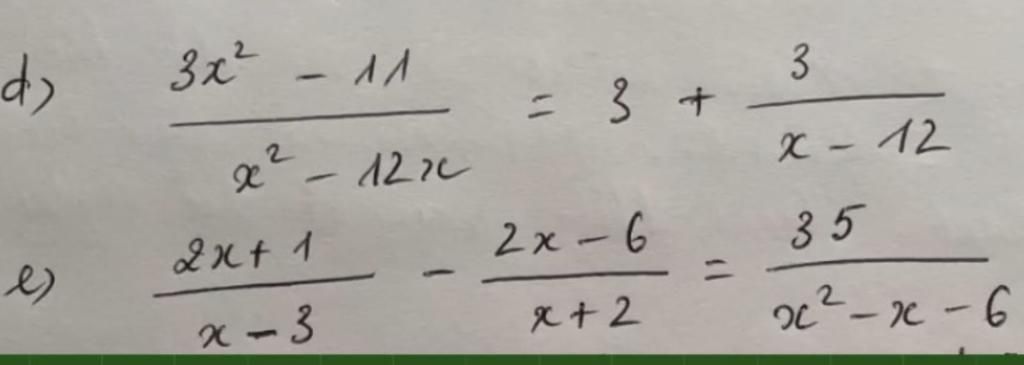 d) (3x² - 11)/(x² - 12x) = 3 + 3/(x - 12)
e) (2x + 1)/(x - 3) - (2x - 6)/(x + 2) = 35/(x² - x - 6)